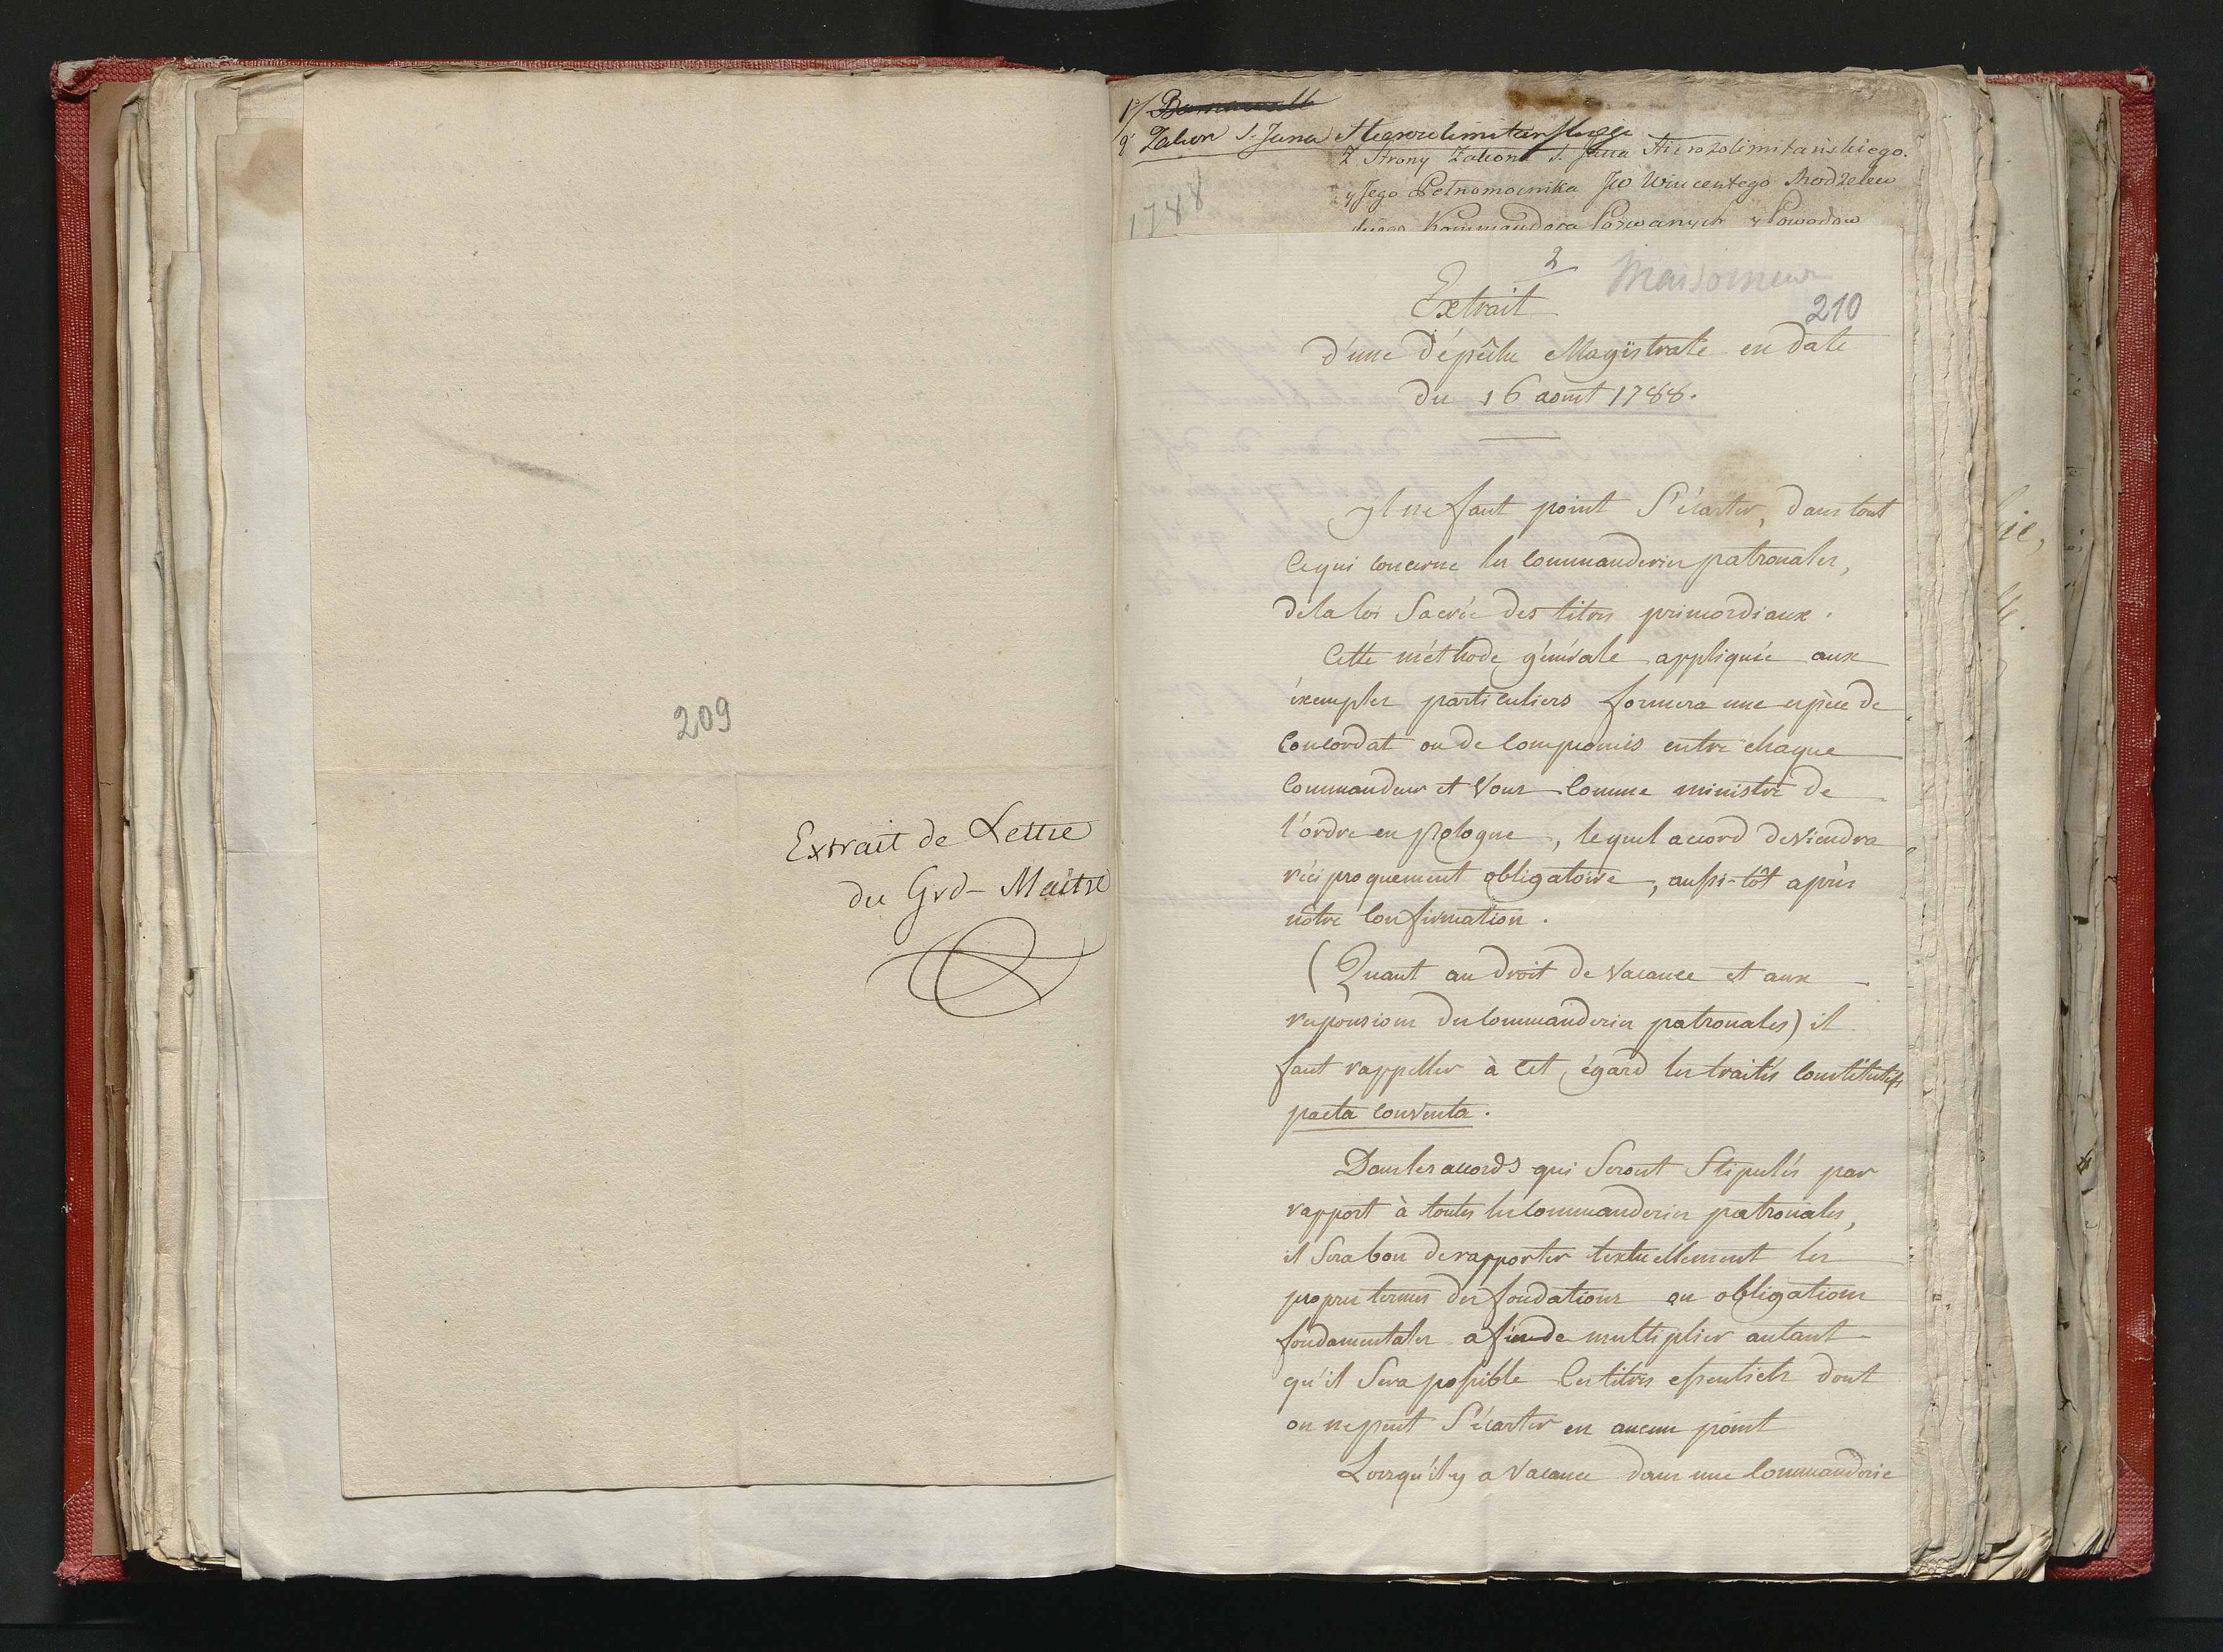 209
Extrait de Lettre
du Grd- Maître
Zakon S. Jana Hierozolimitańskiego
Z Strony Zakonu S. Jana Hierozolimitańskiego.
y Jego Pełnomocnika JW Wincentego
Kommandora Pozwanych y Powodow
1788
2
210
Extrait
d'une dépêche Magistrale en date
du 16 aout 1788.
yl ne faut point s'écarter, dans tout
ce qui concerne les commanderies patronales,
de la loi sacrée des titres primordiaux.
Cette méthode générale appliquée aux
éxemples particuliers formera une espèce de
concordat ou de compromis entre chaque
commandeur et vous comme ministre de
l'ordre en pologne, lequel accord deviendra
réciproquement obligatoire, aussi-tôt après
nôtre confirmation.
(Quant au droit de vacance et aux
responsions des commanderies patronales) il
faut rappeller à cet égard les traités constitutifs
pacta conventa.
Dans les accords qui seront stipulés par
rapport à toutes les commanderies patronales,
il sera bon de rapporter textuellement les
propres termes des fondations ou obligations
fondamentales afin de multiplier autant
qu'il sera possible les titres essentiels dont
on ne peut s'écarter en aucun point
Lorsqu'il y a vacance dans une commanderie